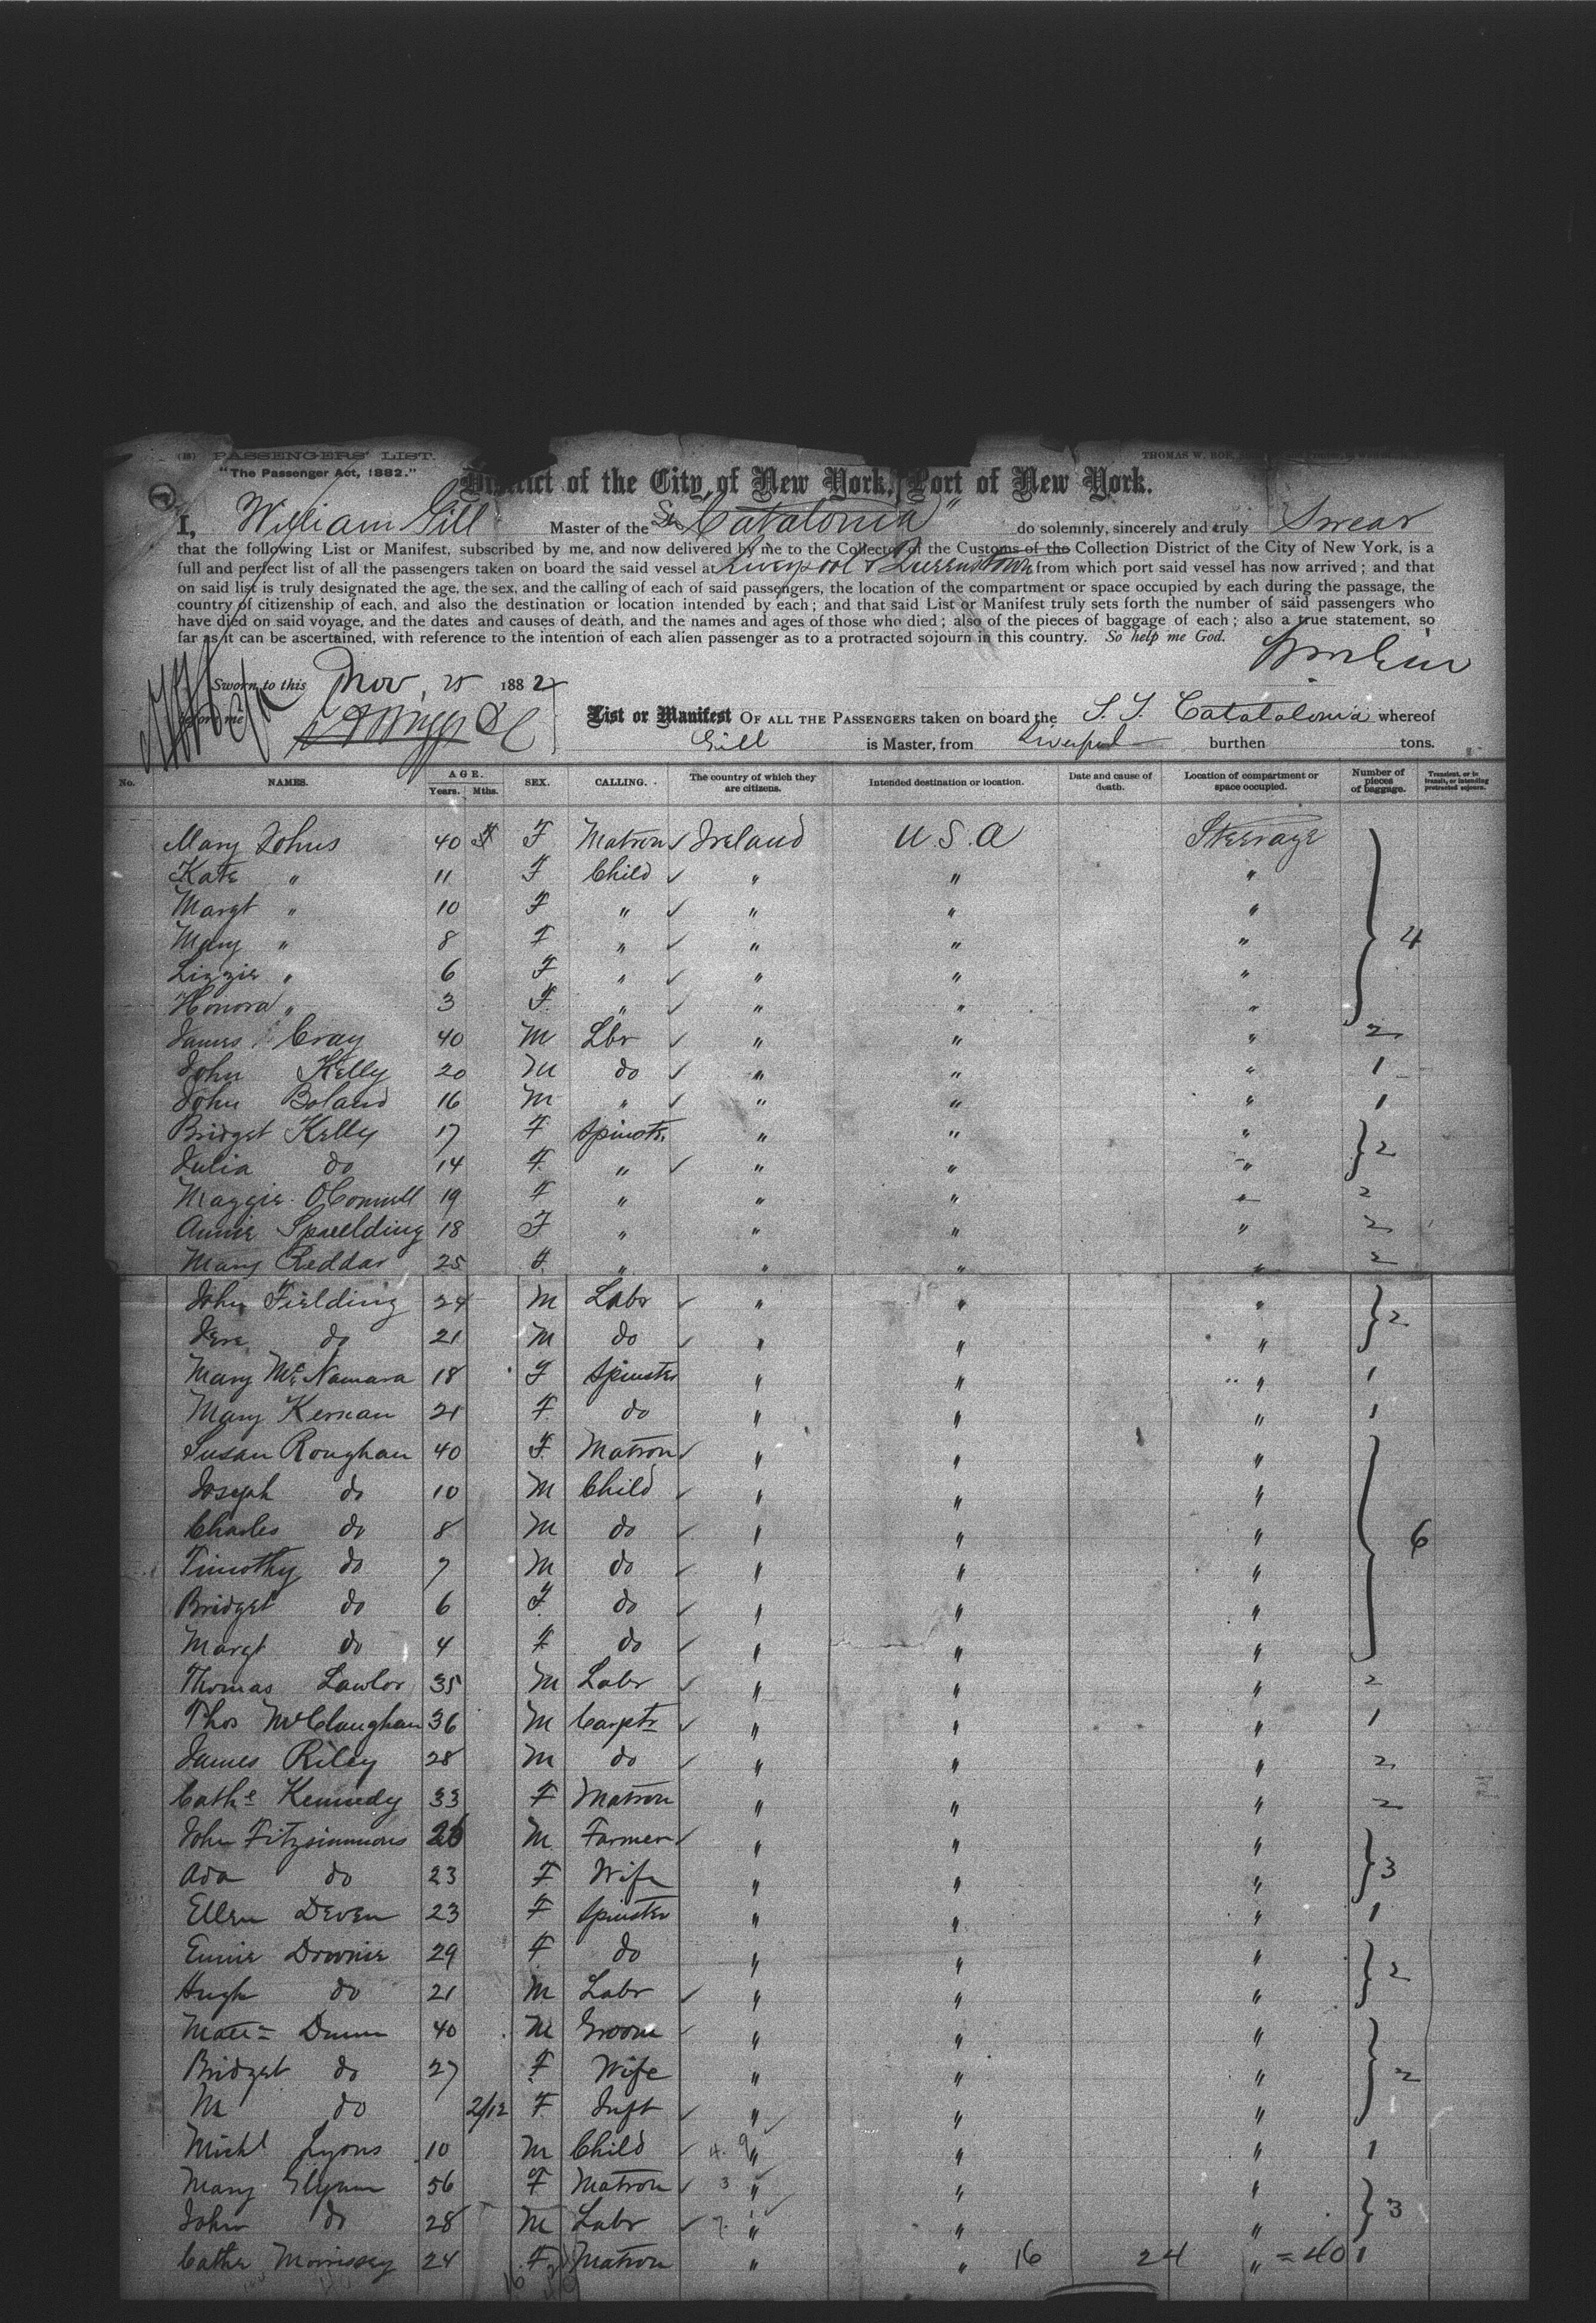 (18) PASSENGERS' LIST. THOMAS W.
"The Passenger Act, 1882."
District of the City of New York, Port of New York.
I, William Gill Master of the SS "Catalonia" do solemnly, sincerely and truly Swear
that the following List or Manifest, subscribed by me, and now delivered by me to the Collector of the Customs of the Collection District of the City of New York, is a
full and perfect list of all the passengers taken on board the said vessel at Liverpool & Queenstown from which port said vessel has now arrived; and that
on said list is truly designated the age, the sex, and the calling of each of said passengers, the location of the compartment or space occupied by each during the passage, the
country of citizenship of each, and also the destination or location intended by each; and that said List or Manifest truly sets forth the number of said passengers who
have died on said voyage, and the dates and causes of death, and the names and ages of those who died; also of the pieces of baggage of each; also a true statement, so
far as it can be ascertained, with reference to the intention of each alien passenger as to a protracted sojourn in this country. So help me God.
Wm Gill
Sworn to this Nov. 25 1882
before me
List or Manifest OF ALL THE PASSENGERS taken on board the S.S. Catalonia whereof
Gill is Master, from Liverpool burthen tons.
No. NAMES. AGE. Years. Mths. SEX. CALLING. The country of which they are citizens. Intended destination or location. Date and cause of death. Location of compartment or space occupied. Number of pieces of baggage. Transient, or in transit, or intending protracted sojourn.
Mary Johns 40 F Matron Ireland U.S.A Steerage
Kate " 11 F Child " " "
Margt " 10 F " " " "
Mary " 8 F " " " " 4
Lizzie " 6 F " " " "
Honora " 3 F " " " "
James Cray 40 M Lbr " " " 2
John Kelly 20 M do " " " 1
John Boland 16 M " " " " 1
Bridget Kelly 17 F Spinstr. " " " 2
Julia do 14 F " " " "
Maggie O'Connell 19 F " " " " 2
Annie Spaelding 18 F " " " " 2
Mary Reddar 25 F " " " " 2
John Fielding 24 M Labr " " " 2
Jere do 21 M do " " "
Mary McNamara 18 F Spinster " " " 1
Mary Kernan 21 F do " " " 1
Susan Roughan 40 F Matron " " "
Joseph do 10 M Child " " "
Charles do 8 M do " " " 6
Timothy do 7 M do " " "
Bridget do 6 F do " " "
Margt do 4 F do " " "
Thomas Lawlor 35 M Labr " " " 2
Thos McClaughan 36 M Carptr " " " 1
James Riley 28 M do " " " 2
Cathe Kennedy 33 F Matron " " " 2
John Fitzsimmons 26 M Farmer " " " 3
Ada do 23 F Wife " " "
Ellen Deven 23 F Spinster " " " 1
Emmie Downie 29 F do " " " 2
Hugh do 21 M Labr " " "
Matt= Dunn 40 M Groom " " "
Bridget do 27 F Wife " " " 2
M do 2/12 F Inft " " "
Michl Lyons 10 M Child " " " 1
Mary Glynn 56 F Matron " " " 3
John do 28 M Labr " " "
Cathe Morrissey 24 F Matron " " 16 24 " = 40 1